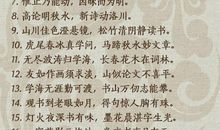 7. 惟正为能动，万物同一
8. 高论明秋水，新诗动洛川。
9. 山川佳色澄悬镜，松竹清阴静读书。
10. 虎尾春冰真学问，马蹄秋水妙文章。
11. 无尽波涛归学海，长春花木在词林。
12. 友如作画须求淡，山似论文不喜平。
13. 学海无涯勤可渡，书山万仞志能攀。
14. 观书到老眼如月，得句惊人胸有珠。
15. 灯火夜深书有味，墨花晨湛字生光。